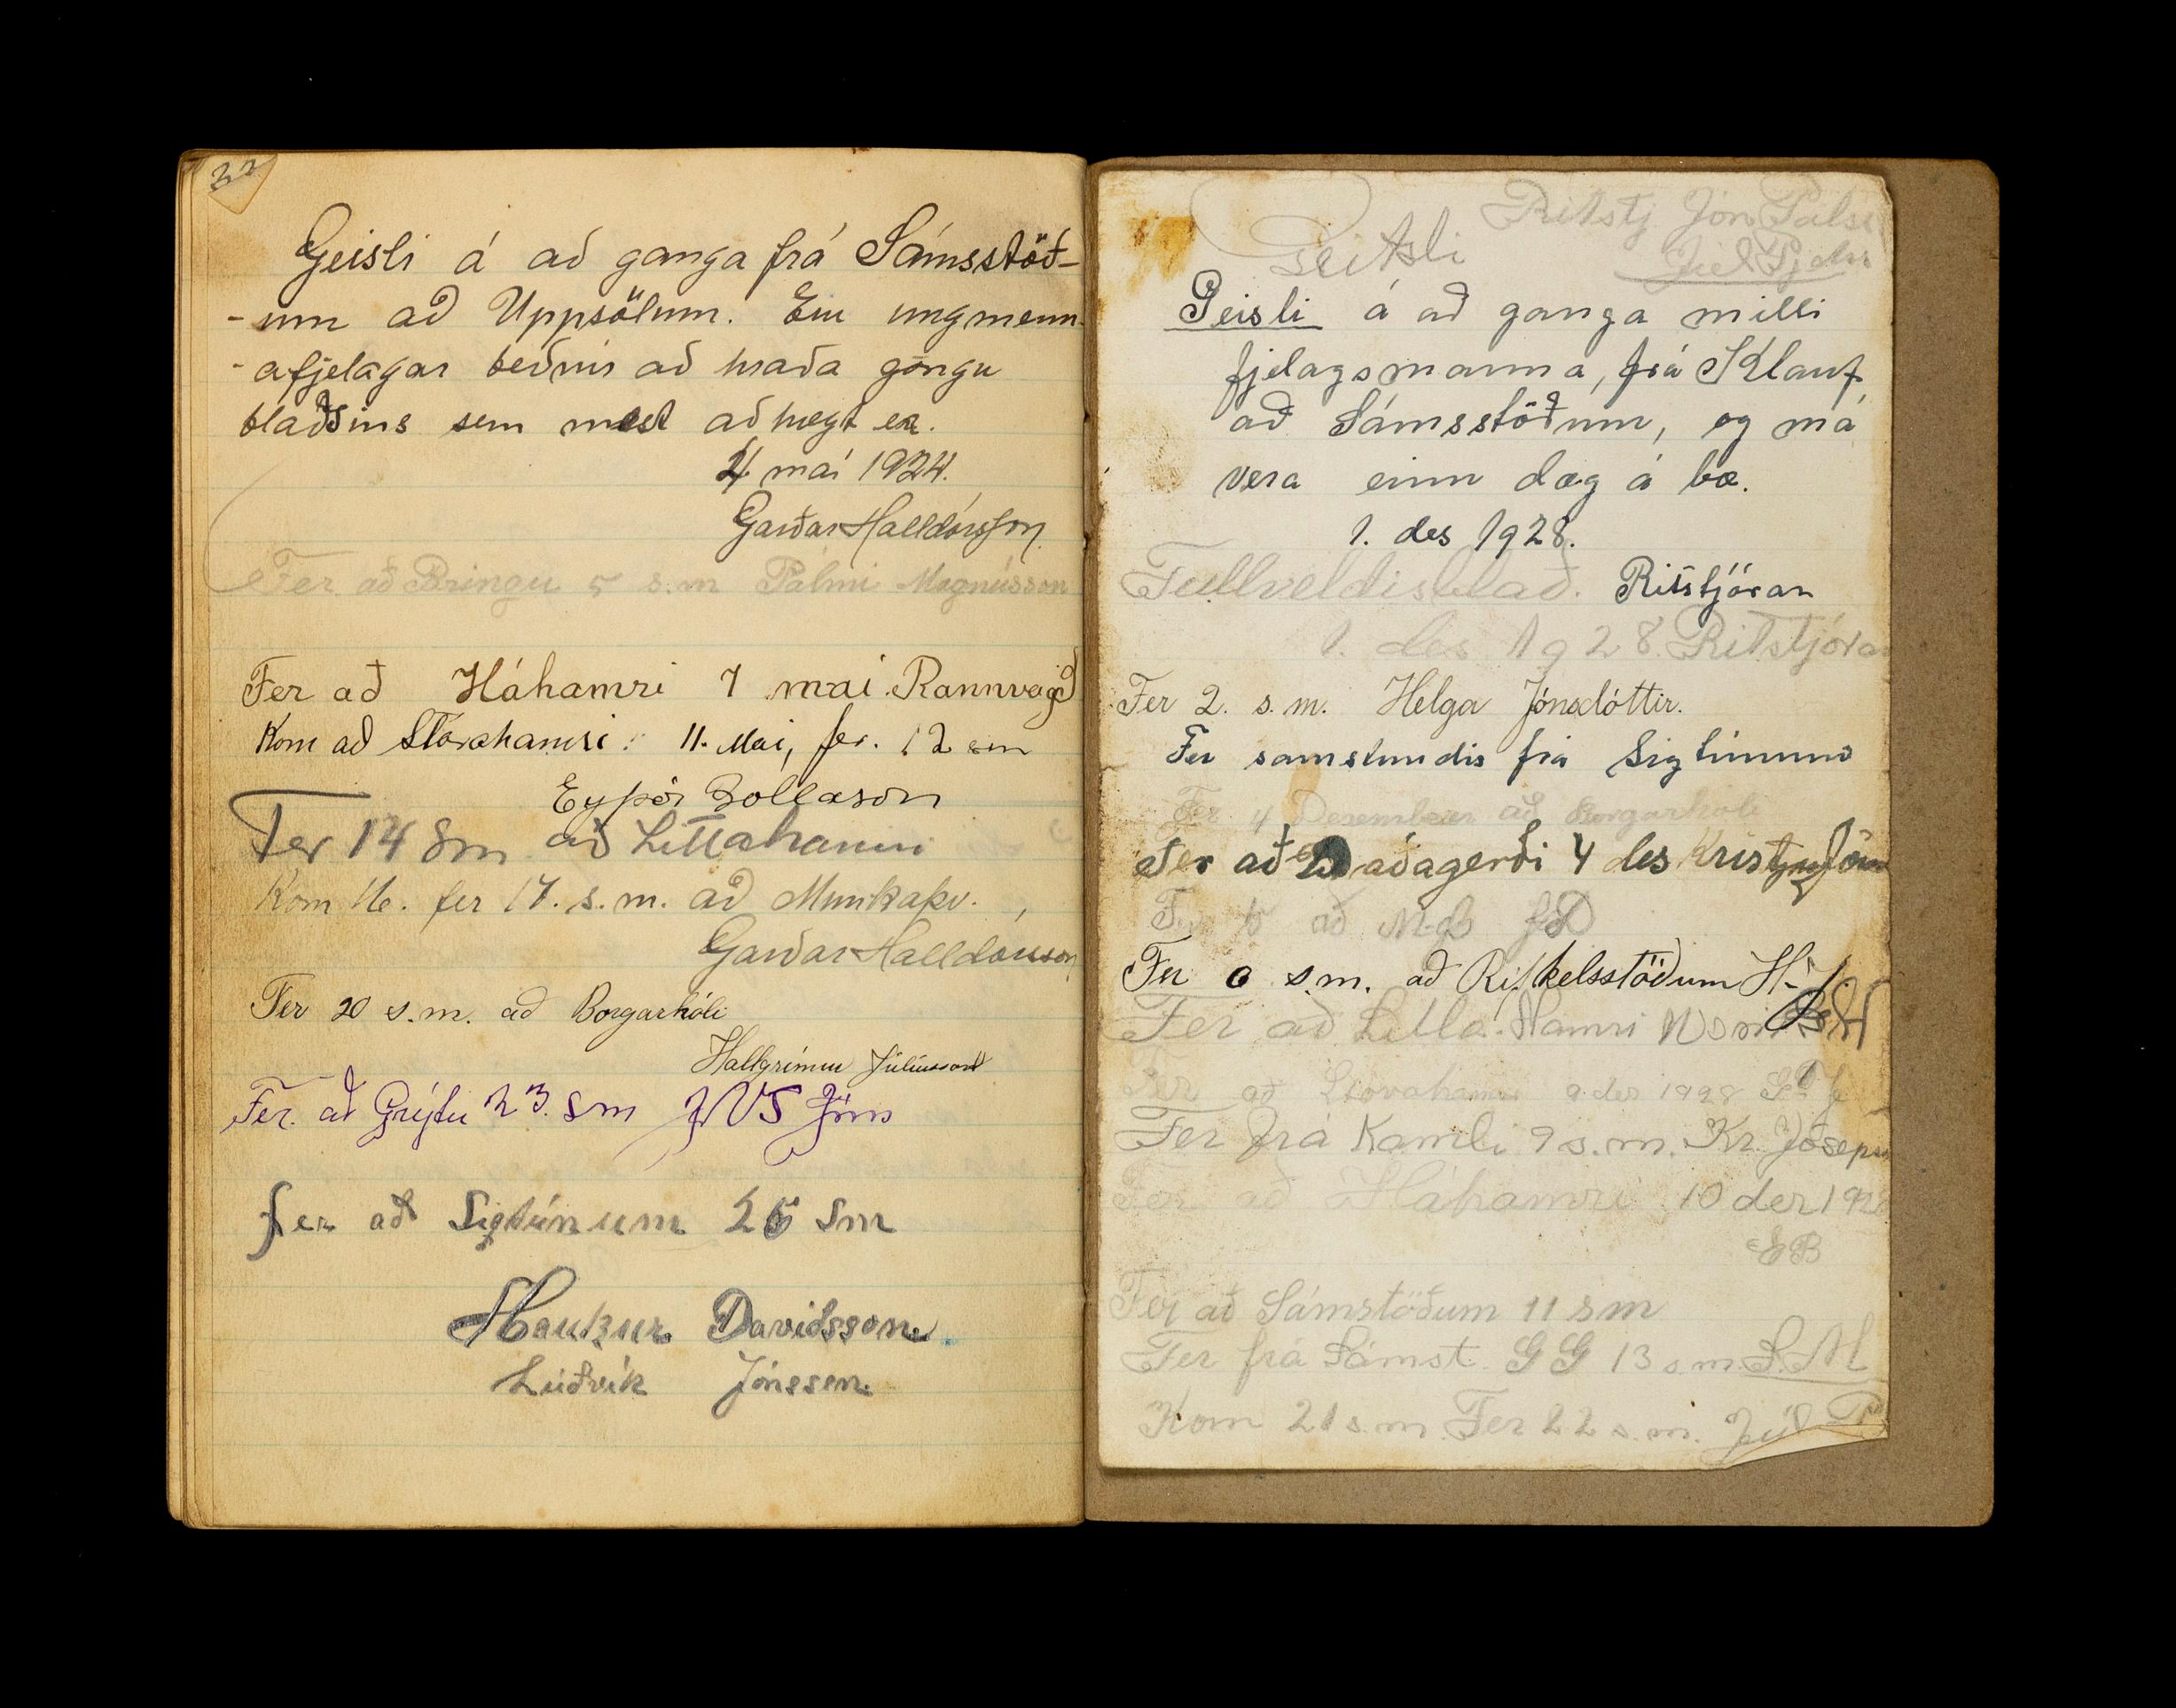 Geisli á að ganga frá Sámsstöð-
-um að Uppsölum. Eru ungmenn-
-afjelagar beðnir að hraða göngu
blaðsins sem mest að hægt er.
4 maí 1924.
Garðar Halldórsson
Fer að Bringu 5 s.m Pálmi Magnússon
Fer að Háhamri 7 maí Rannveig
Kom að Stórahamri: 11. Mai, fer. 12 sm
Eyþór Bollason
Fer 14 Sm að Littahamri
Kom 16. fer 17. s.m. að Munkaþv.
Garðar Halldórsson
Fer 20 s.m. að Borgarhóli
Hallgrímur Júlíusson
Fer. að Grýtu 23. Sm Jóns
fer að Sigtúnum 26 Sm
Haukur Davíðsson
Lúðvík Jónsson
Ritstj Jón Páls
Geisli
Geisli á að ganga milli
fjelagsmanna, frá Klauf
að Sámsstöðum, og má
vera einn dag á bæ.
1. des 1928.
Fullveldisblað. Ritstjórar
1. des 1928. Ritstjórar
Fer 2. s.m. Helga Jónsdóttir.
Fer samstundis frá Sigtúnum
Fer 4 Desember að Borgarhóli
Fer að Daðagerði 4 des
að M-B
Fer 6 s.m. að Rifkelsstöðum H-J
Fer að Litla-Hamri
að Stórahamri 9. des 1928
Fer frá Kamli 9 s.m. Kr. Jóseps
Fer að Háhamri 10 des 192
EB
Fer að Sámstöðum 11 sm
Fer frá Sámst. GG 13 s.m. S.M
Kom 21 s.m. Fer 22 s.m. Júl